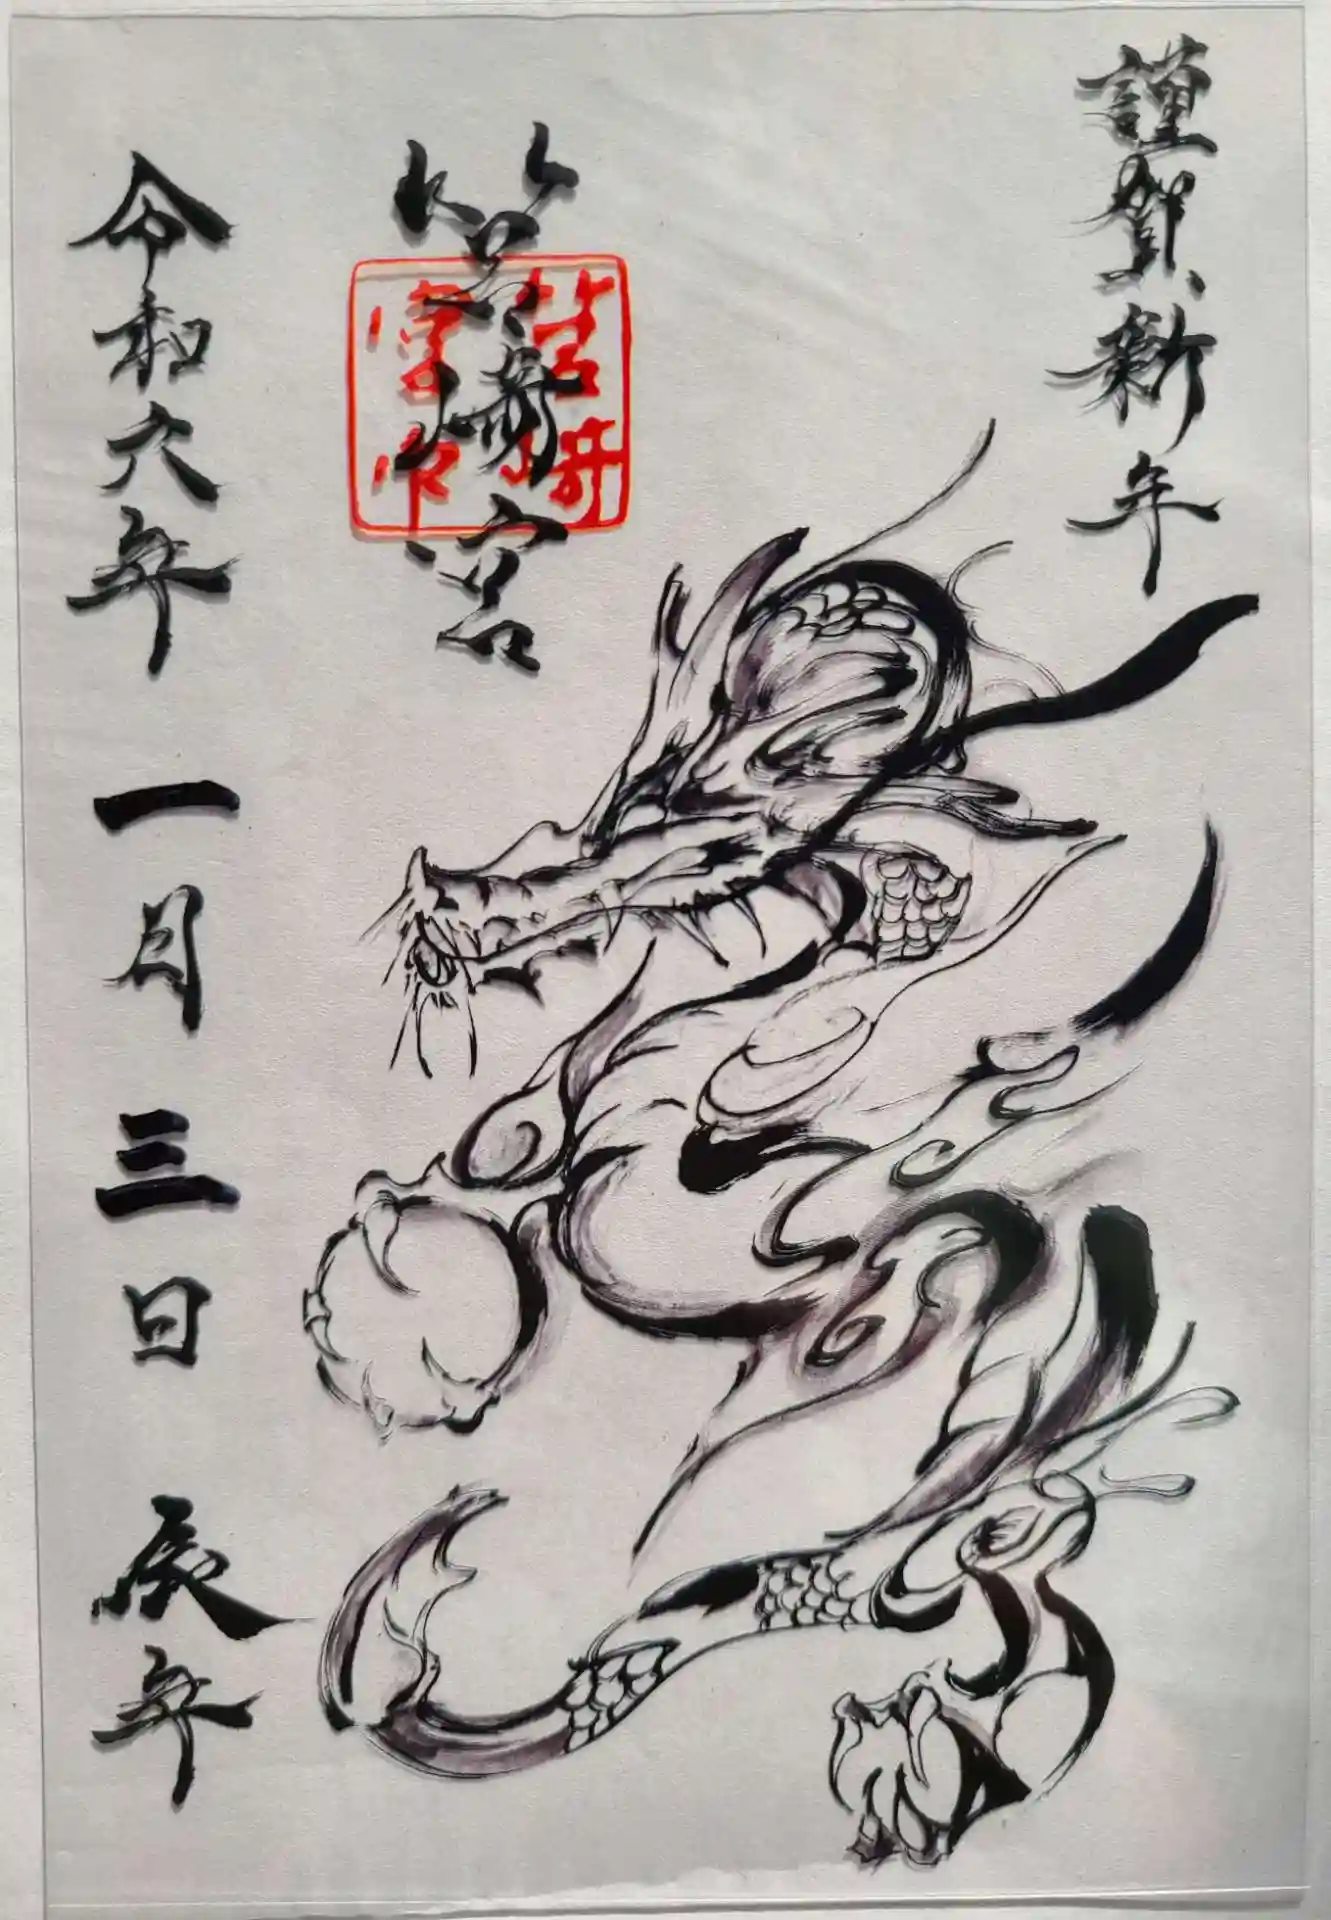 謹賀新年
筥崎宮
筥崎
宮印
令和六年 一月 三日 辰年